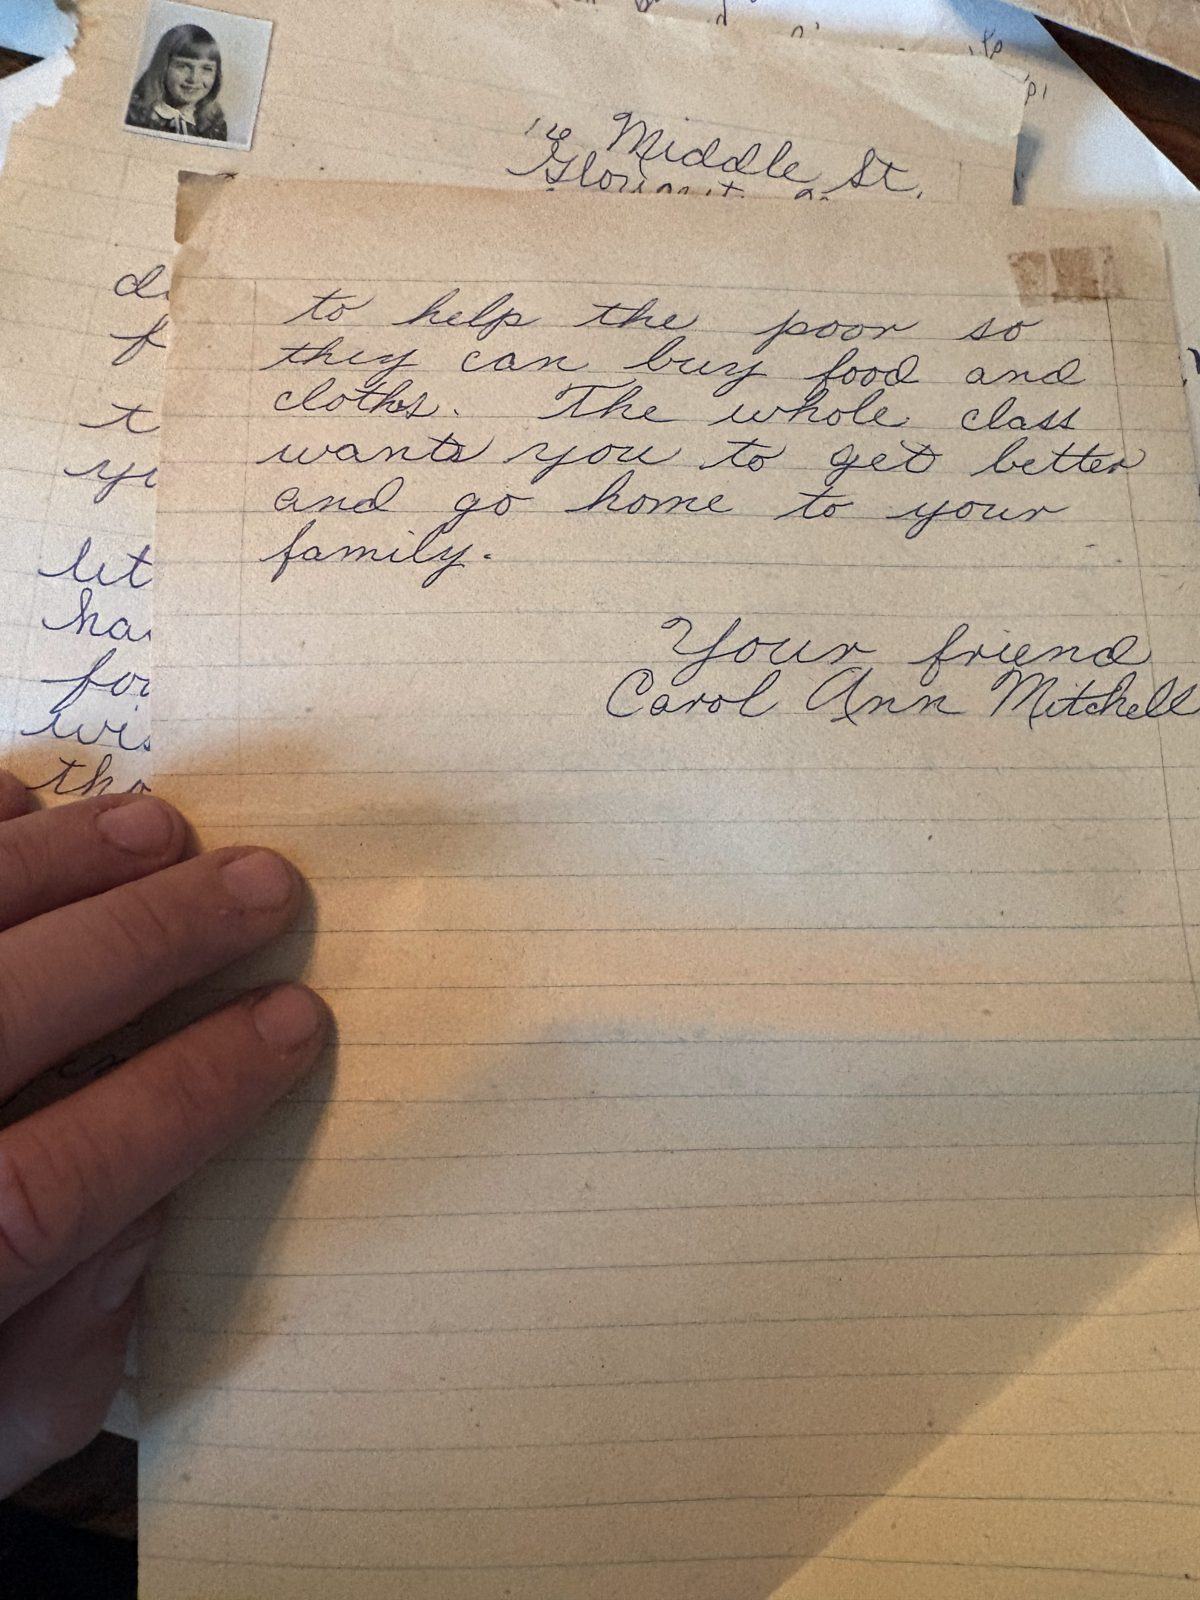 Middle St.
to help the poor so
they can buy food and
cloths. The whole class
wants you to get better
and go home to your
family.
Your friend
Carol Ann Mitchell